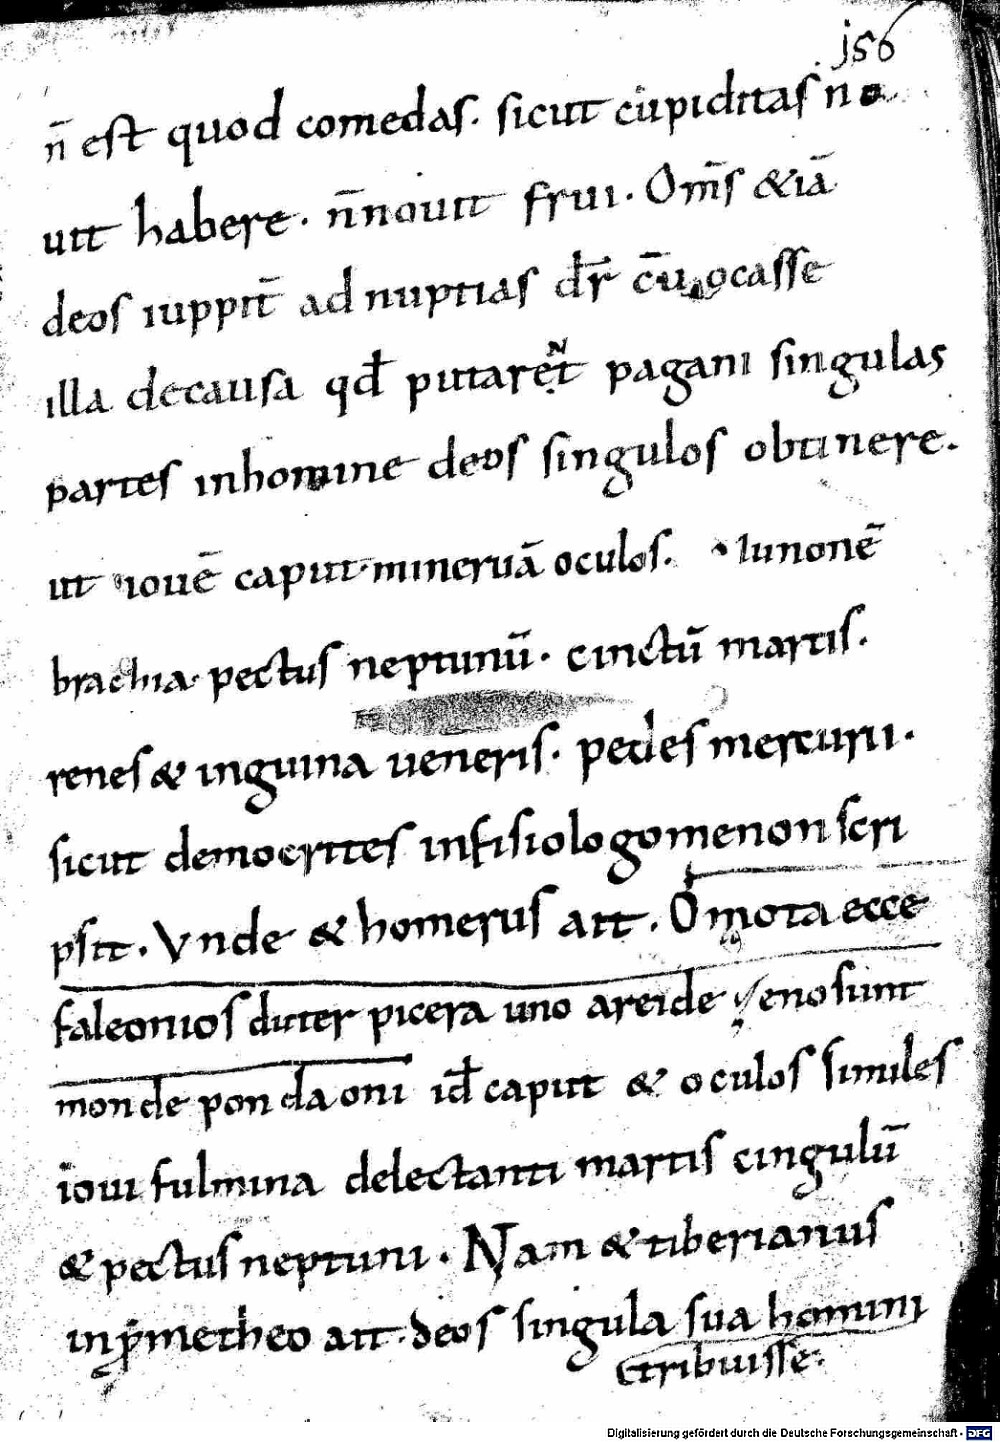 j56
n̄ est quod comedas. sicut cupiditas no
uit habere. n̄ nouit frui. Om̄s &iā
deos iuppit̄ ad nuptias dr̄ c̄uocasse
illa decausa qđ putaret̄ pagani singulas
partes inhomine deos singulos obtinere.
ut iouē caput mineruā oculos. Iunonē
brachia pectus neptunū. cinctū martis.
renes & inguina ueneris. pedes mercurii.
sicut democrites infisiologomenon scri
psit. Vnde & homerus ait. Omota ecce
faleonios diiter picera uno areide enosunt
mon de pon da oni id̄ caput & oculos similes
ioui fulmina delectanti martis cingulū
& pectus neptuni. Nam & tiberianus
inp̄metheo ait. deos singula sua homini
tribuisse.
Digitalisierung gefördert durch die Deutsche Forschungsgemeinschaft - DFG